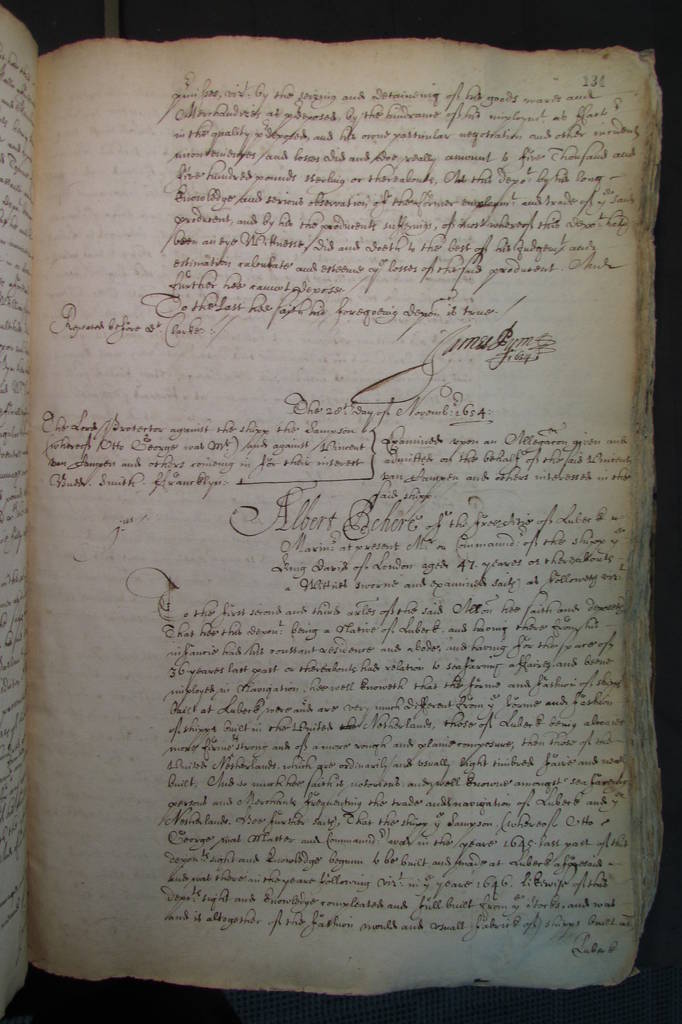 134
p̱mises, vizt. by the seizing and deteineing of his goods wares and
Merchandizes as p̱deposed, by the hindrance of his imploymt. as ffactr
in the quality p̱deposed, and his owne particular negotiation and other incident
inconveniences and losses did and doe really amount to five Thousand and
five hundred pounds sterling or thereabouts, And this depot. by his long
knowledge and serious observation of the former employmt and trade of ye said
producent, and by his the producents sufferings, of most whereof this depot. hath
been an eye Wittnesse, did and doeth to the best of his Judgemt and
estimation calculate and esteeme ye losses of the said producent. And
further hee cannot depose.
To the last hee saith his foregoeing depon is true./
Repeated before dr. Clarke:
James Pym
1654
The 28th. day of Novembr. 1654:
The Lord Protector against the shipp the Sampson
(whereof Otto George was Mr) and against Vincent
van Campen and others comeing in for their interest
Budd. Smith. ffrancklyn:
Examined upon an Allegacon given and
admitted on the behalfe of the said Vincent
van Campen and others interessed in the
said shipp.
jus
Albert Eckert of the free Citie of Lubeck
Marinr. at present Mr or Commandr. of the shipp ye
King David of London aged 47. yeares or thereabouts
a Wittnes sworne and examined saith as followeth vizt.
To the first second and third arles of the said Allon hee saith and deposeth
That hee this depont. being a Native of Lubeck and having there from his
infancie had his constant residence and abode, and having for the space of
36 yeares last past or thereabouts had relation to seafaring affaires, and beene
imployed in Navigation, hee well knoweth that the forme and fashion of shipps
built at Lubeck were and are very much different from ye forme and fashion
of shipps built in the United Netherlands, those of Lubeck being alwaies
more firme strong and of a more rough and plaine composure, then those of the
United Netherlands, which are ordinarily and usually slight timbred faire and neat
built. And so much hee saith is notorious and well knowne amongst sea faring
persons and Merchants frequenting the trade and navigation of Lubeck and ye
Netherlands. Hee further saith, That the shipp ye Sampson, (whereof Otto
George was Master and Commandr.) was in the yeare 1645. last past of this
deponts sight and knowledge begunn to be built and made at Lubeck aforesaid
And was there in the yeare following vizt. in ye yeare 1646. likewise of this
depots. sight and knowledge compleated and full built from ye stocks, and was
and is altogether of the fashion mould and usuall fabrick of shipps built at
Lubeck